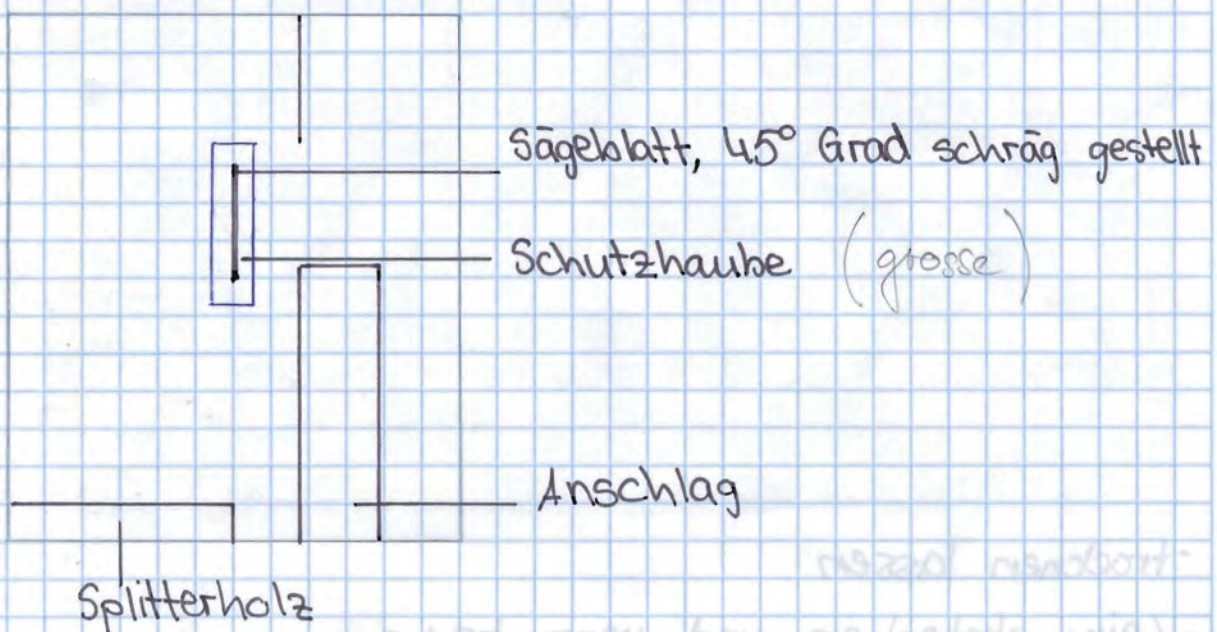 Sägeblatt, 45° Grad schräg gestellt
Schutzhaube (grosse)
Anschlag
Splitterholz
-trocknen lassen